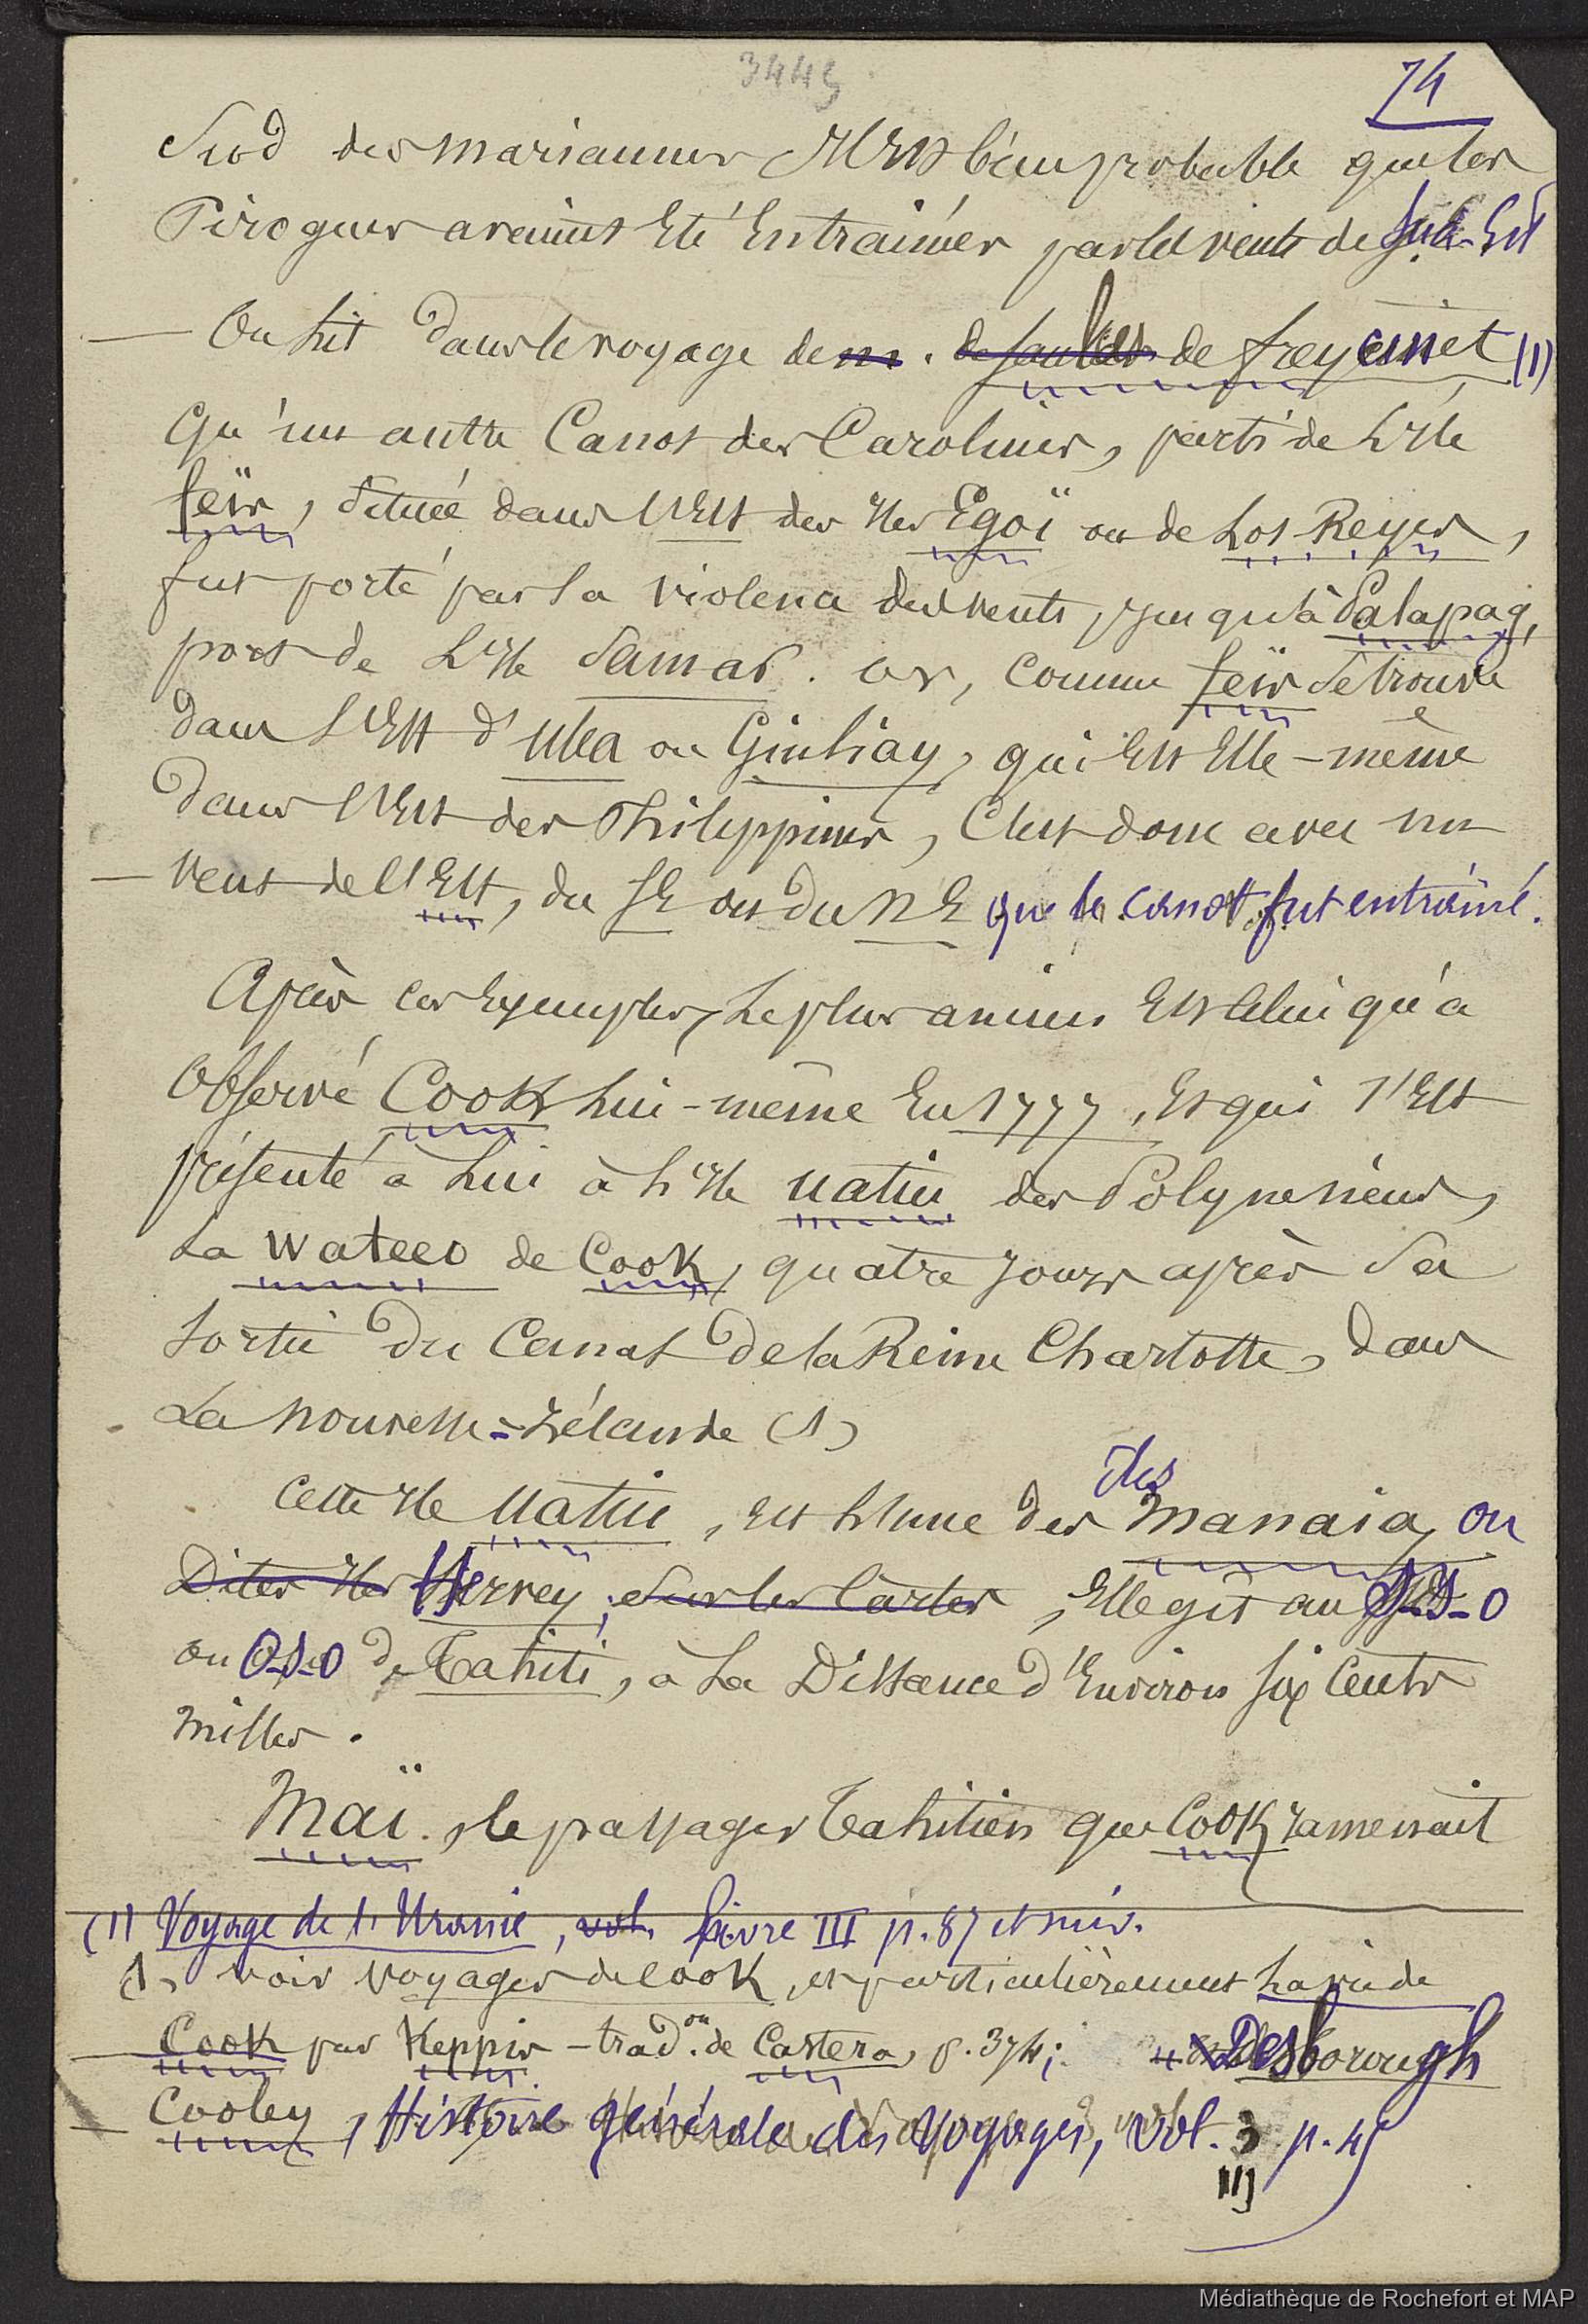 3445
74
Sud des Mariannes Il est bien probable que les
Pirogues avaient Eté Entrainées par les vents de Sud-Est
— On Lit dans le voyage de m. de de freycinet (1)
Qu'un autre Canot des Carolines, parti de L'Ile
feïs, Située dans l'Est des Iles Egoï ou de Los Reyes,
fut porté par la violence des vents, jusqu'à Palapag,
port de L'Ile Samar. or, comme feïs se trouve
dans l'Est d'Ulea ou Guliay, qui Est Elle-même
dans l'Est des Philippines, C'est donc avec un
— vent de l'Est, du SE ou du NE que le canot fut entraîné.
Après ces Exemples, Le plus ancien Est Celui qu'a
Observé Cook Lui-même En 1777, Et qui s'Est
présenté à Lui à L'Ile Uatiu des Polynésiens,
La Wateeo de Cook, quatre jours après Sa
Sortie du Canal de la Reine Charlotte, dans
La Nouvelle-Zélande (1)
Cette Ile Uatiu, est L'une des Iles Manaia, ou
Dites Iles Hervey, Sur les Cartes, Elle gît au S-S-O
ou O-S-O de Tahiti, à La Distance d'Environ Six Cents
Milles.
Maï, le passager Tahitien que Cook ramenait
(1) Voyage de l'Uranie, vol. Livre III p. 87 et suiv.
(1) voir voyages de Cook, et particulièrement La vie de
Cook par Keppis — trad.on de Castera, p. 374; Desborough
Cooley, Histoire générale des voyages, vol. 3 p. 45
III
Médiathèque de Rochefort et MAP